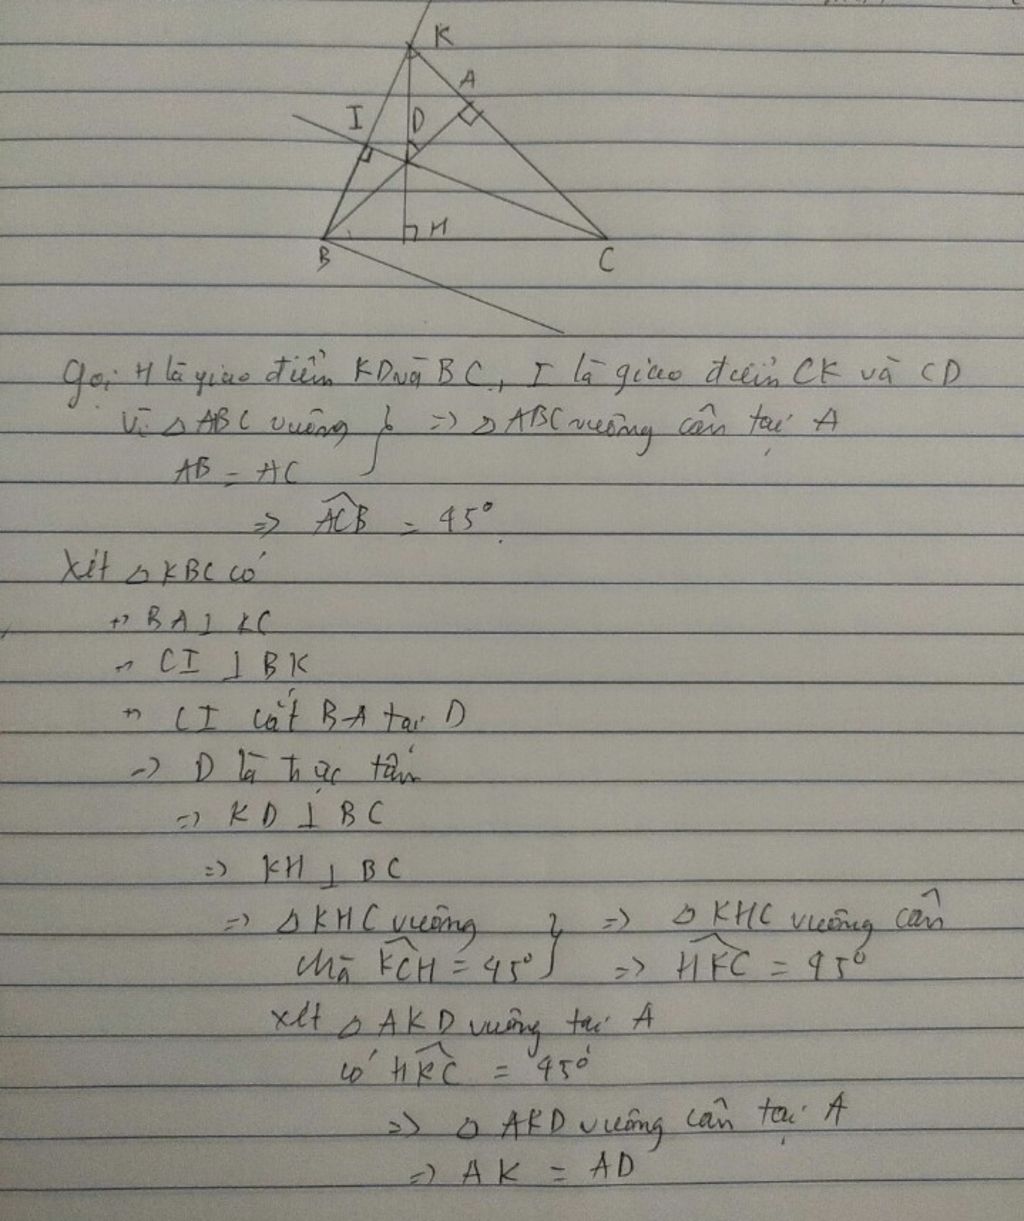 K
A
I
D
H
B
C
Gọi H là giao điểm KD và BC, I là giao điểm CK và CD
Vì △ABC vuông } => △ABC vuông cân tại A
AB = AC
=> ACB = 45°
Xét △KBC có
+> BA ⊥ KC
+> CI ⊥ BK
+> CI cắt BA tại D
=> D là trực tâm
=> KD ⊥ BC
=> KH ⊥ BC
=> △KHC vuông } => △KHC vuông cân
Mà KCH = 45° => HKC = 45°
Xét △AKD vuông tại A
có HKC = 45°
=> △AKD vuông cân tại A
=> AK = AD